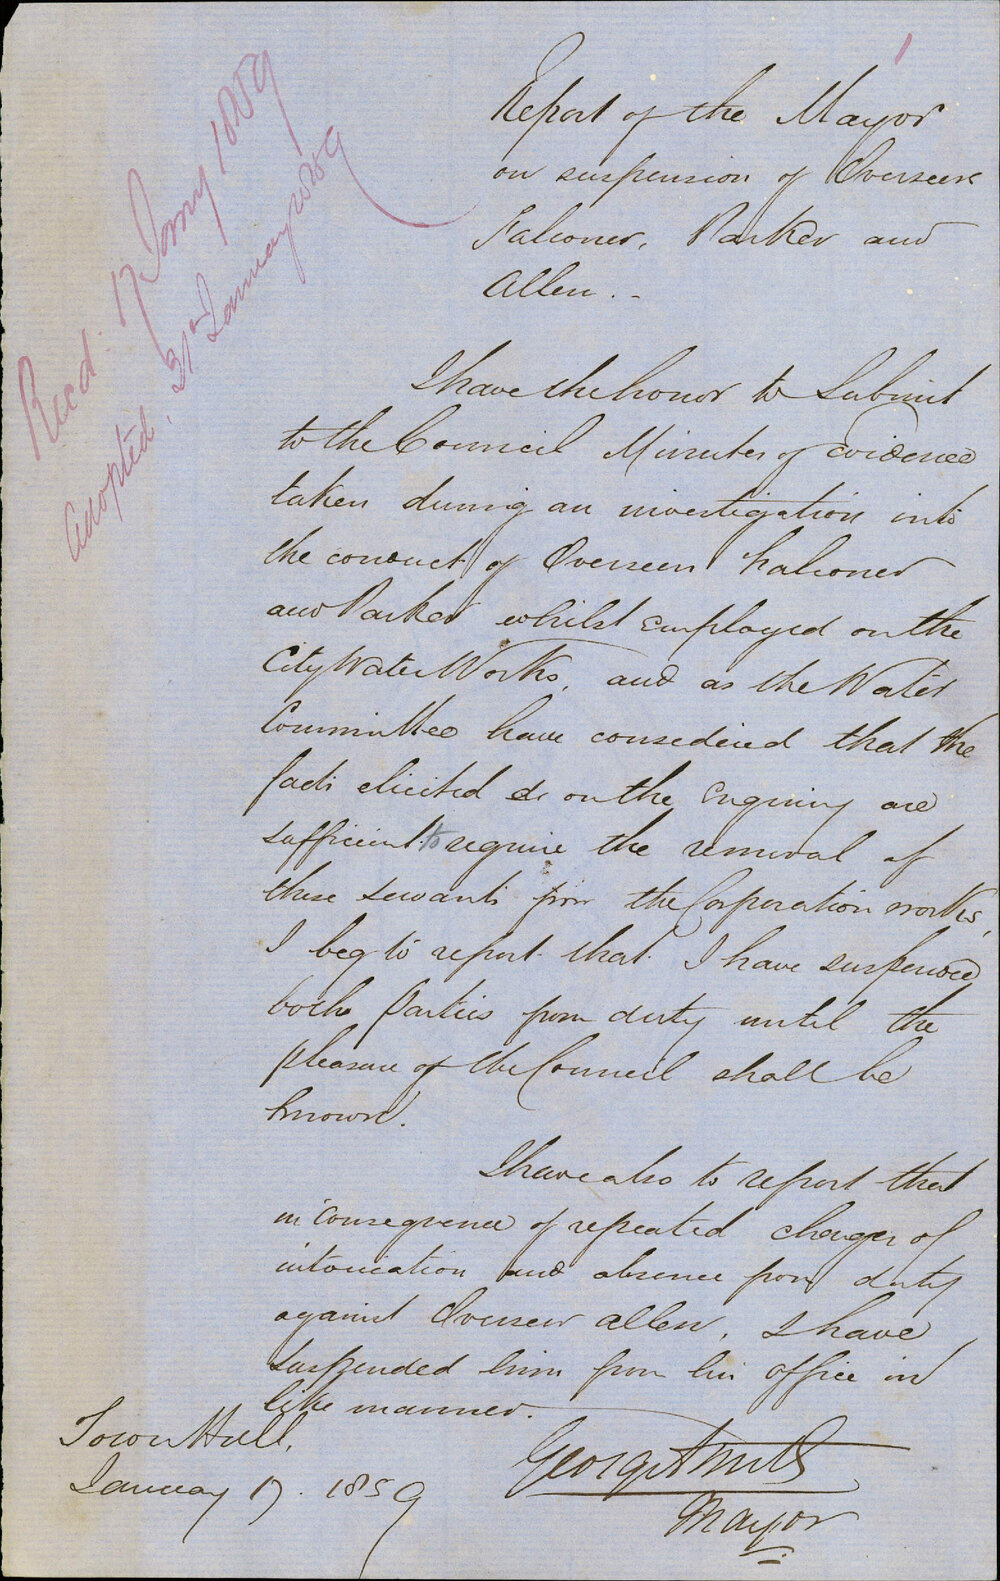 Report of the Mayor
on suspension of Overseers
Falconer, Parker and
Allen. -
Recd. 17 Jany 1859
Adopted, 31st January 1859
I have the honor to Submit
to the Council Minutes of evidence
taken during an investigation into
the conduct of Overseers Falconer
and Parker whilst employed on the
City Water Works, and as the Water
Committee have considered that the
facts elicited on the enquiry are
sufficient to require the removal of
these servants from the Corporation works,
I beg to report that I have suspended
both parties from duty until the
pleasure of the Council shall be
known.
I have also to report that
in consequence of repeated charges of
intoxication and absence from duty
against Overseer Allen, I have
suspended him from his office in
like manner.
Town Hall,
January 17. 1859
George Smith
Mayor